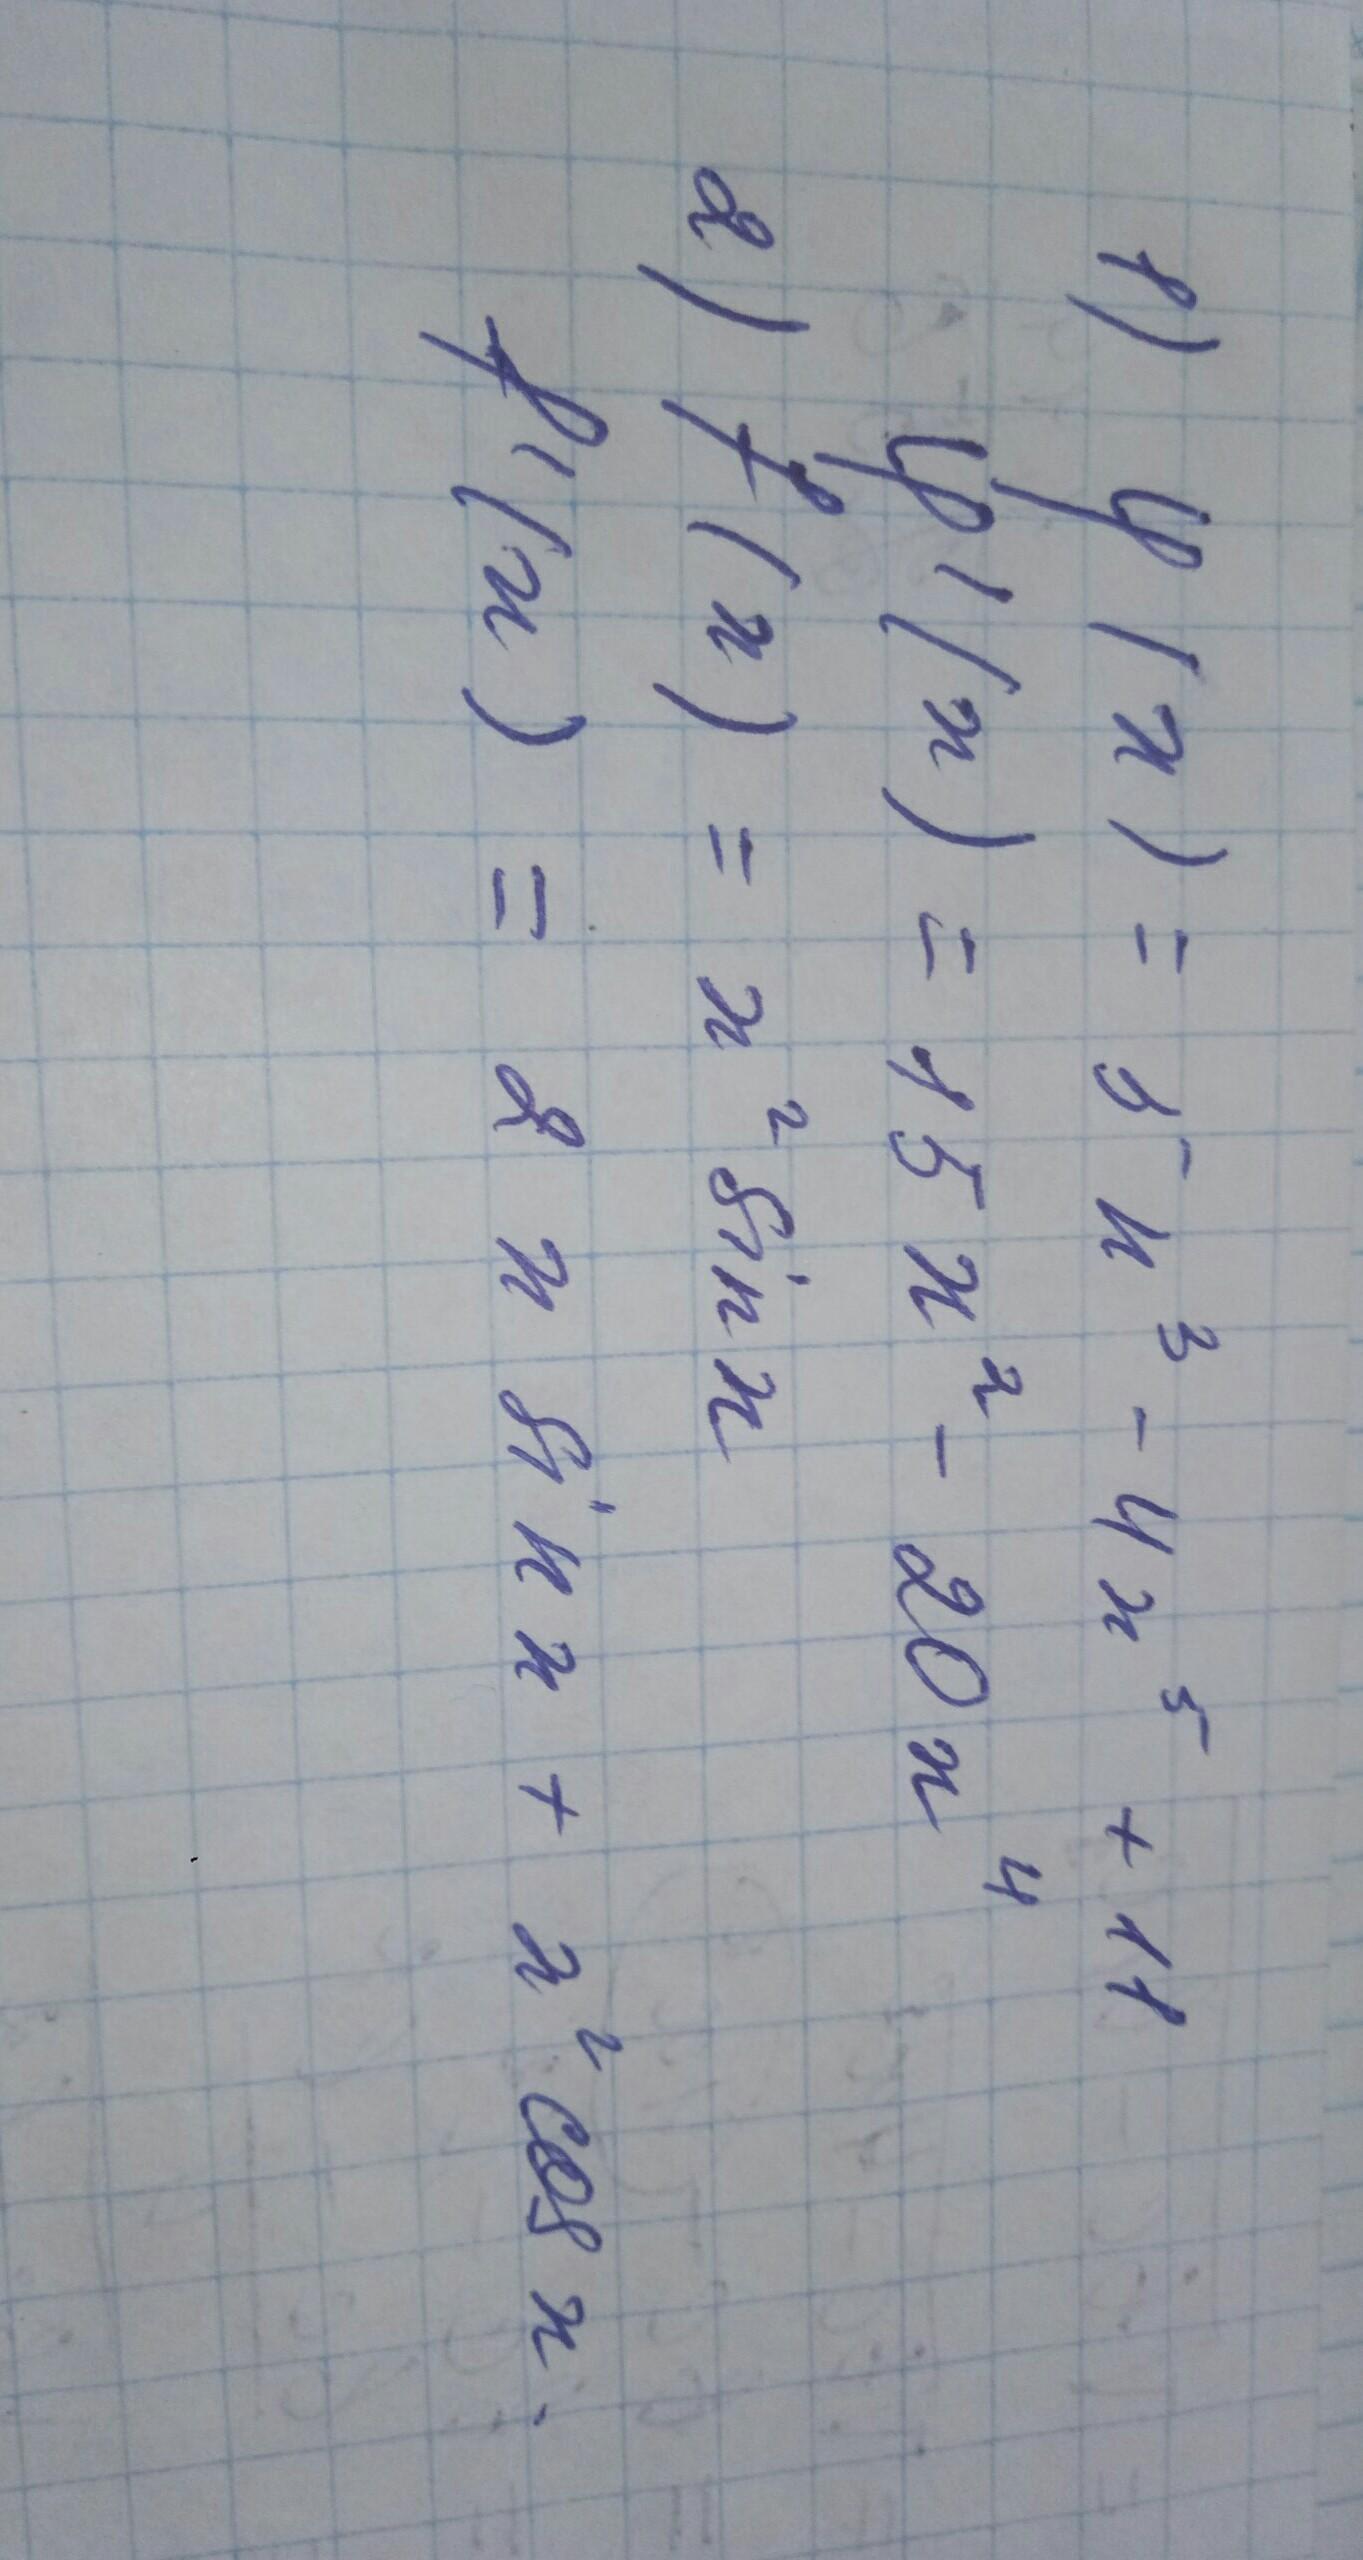 1) y(x) = 5x³ - 4x⁵ + 11
y'(x) = 15x² - 20x⁴
2) f(x) = x² sin x
f'(x) = 2x sin x + x² cos x.